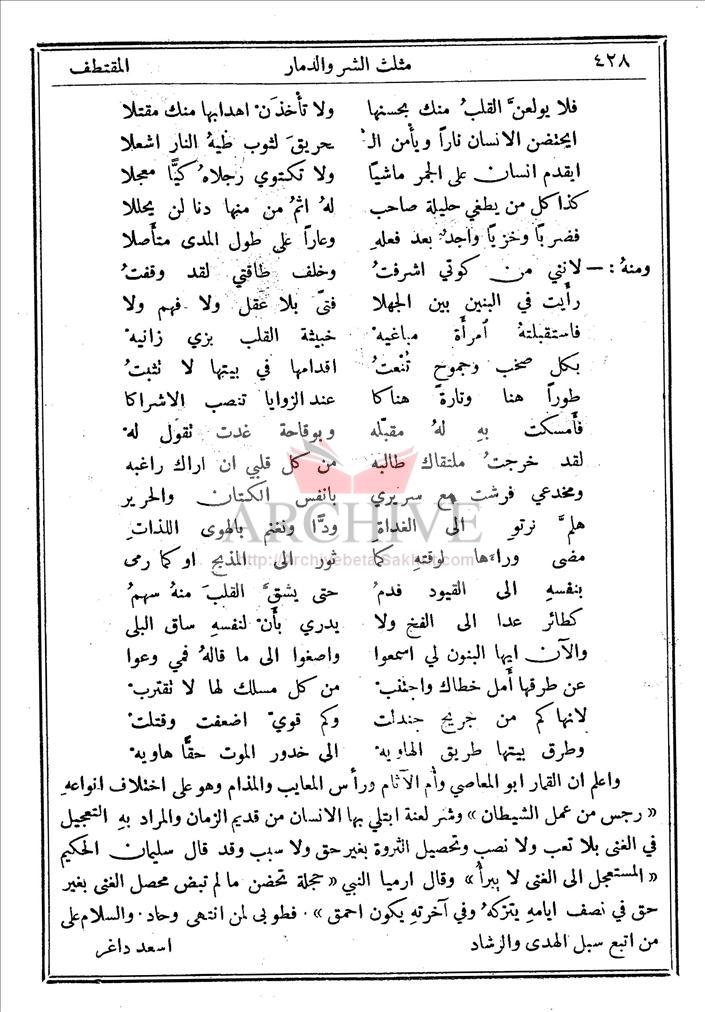 ٤٢٨ مثلث الشر والدمار المقتطف
فلا يولعنَّ القلبُ منك بحسنها ولا تأْخذَن اهدابها منك مقتلا
ايحتضن الانسان ناراً ويأْمن الـ حريقَ لثوب ظيهُ النار اشعلا
ايقدم انسان على الجمر ماشياً ولا تكتوي رجلاهُ كيًّا معجلا
كذا كل من يطغي حليلة صاحب لهُ اثمُ من منها دنا لن يحللا
فضرباً وخزياً واجدٌ بعد فعلهِ وعاراً على طول المدى متأصلا
ومنهُ: — لانني من كوتي اشرفتُ وخلف طاقتي لقد وقفتُ
رأَيت في البنين بين الجهلا فتىً بلا عقل ولا فهم ولا
فاستقبلتهُ امرأَة مباغيه خبيثة القلب بزي زانيه
بكل صخب وجموح تُنعتُ اقدامها في بيتها لا تثبتُ
طوراً هنا وتارة هناكا عند الزوايا تنصب الاشراكا
فأَمسكت بهِ لهُ مقبّله وبوقاحة غدت تقول له
لقد خرجتُ ملتقاك طالبه من كل قلبي ان اراك راغبه
ومخدعي فرشت مع سريري بانفس الكتان والحرير
هلمَّ نرتو الى الغداةِ ودًّا ونغنم بالهوى اللذاتِ
مضى وراءها لوقتهِ كما ثور الى المذبح او كما رمى
بنفسهِ الى القيود فدمُ حتى يشقَّ القلبَ منهُ سهمُ
كطائر عدا الى الفخ ولا يدري بأَن لنفسهِ ساق البلى
والآن ايها البنون لي اسمعوا واصغوا الى ما قالهُ فمي وعوا
عن طرقها أَمل خطاك واجتنب من كل مسلك لها لا تقترب
لانها كم من جريح جندلت وكم قويّ اضعفت وقتلت
وطرق بيتها طريق الهاويه الى خدور الموت حقًّا هاويه
واعلم ان القمار ابو المعاصي وأم الآثام ورأس المعايب والمذام وهو على اختلاف انواعهِ
« رجس من عمل الشيطان » وشر لعنة ابتلي بها الانسان من قديم الزمان والمراد بهِ التعجيل
في الغنى بلا تعب ولا نصب وتحصيل الثروة بغير حق ولا سبب وقد قال سليمان الحكيم
« المستعجل الى الغنى لا يبرأُ » وقال ارميا النبي « حجلة تحضن ما لم تبض محصل الغنى بغير
حق في نصف ايامهِ يتركهُ وفي آخرتهِ يكون احمق » . فطوبى لمن انتهى وحاد . والسلام على
من اتبع سبل الهدى والرشاد اسعد داغر
ARCHIVE
http://archivebeta.Sakhrit.com